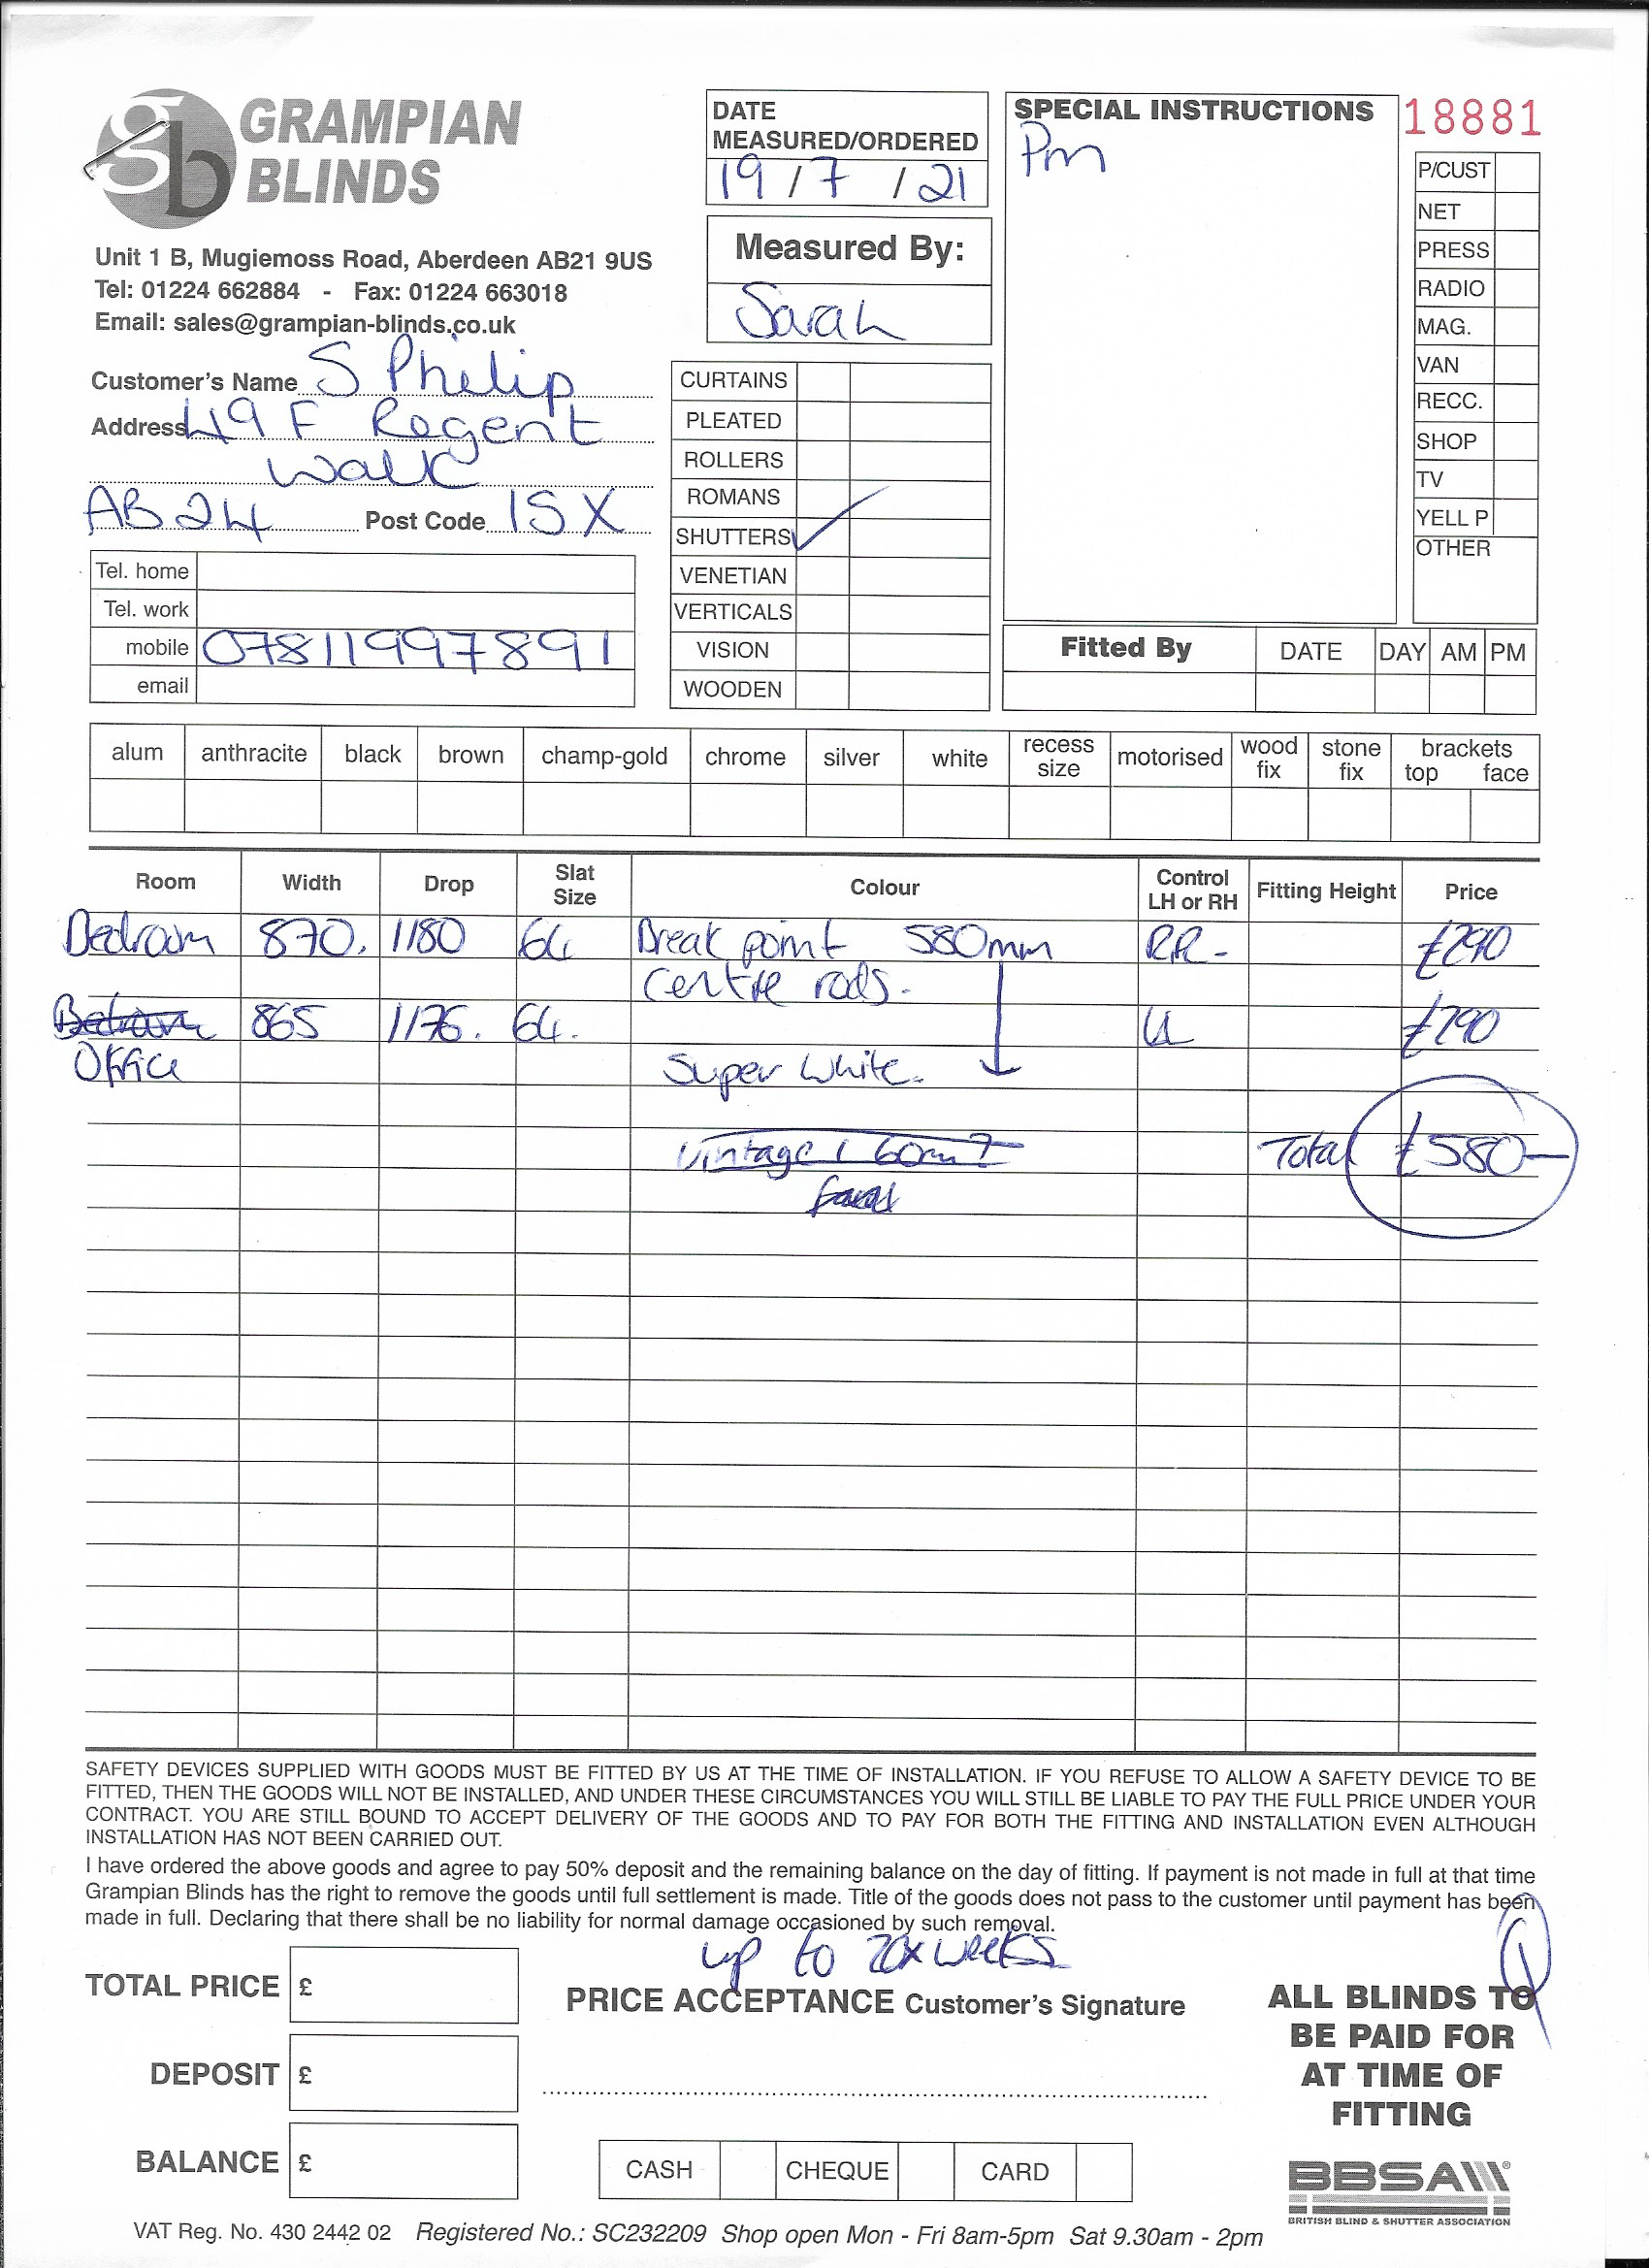 gb GRAMPIAN BLINDS
Unit 1 B, Mugiemoss Road, Aberdeen AB21 9US
Tel: 01224 662884 - Fax: 01224 663018
Email: sales@grampian-blinds.co.uk
Customer's Name S Philip
Address 49 F Regent
Walk
AB24 Post Code 1SX
Tel. home
Tel. work
mobile 07811997891
email
DATE
MEASURED/ORDERED
19 / 7 / 21
Measured By:
Sarah
CURTAINS
PLEATED
ROLLERS
ROMANS
SHUTTERS ✓
VENETIAN
VERTICALS
VISION
WOODEN
SPECIAL INSTRUCTIONS
Pm
18881
P/CUST
NET
PRESS
RADIO
MAG.
VAN
RECC.
SHOP
TV
YELL P
OTHER
Fitted By DATE DAY AM PM
alum anthracite black brown champ-gold chrome silver white recess size motorised wood fix stone fix brackets top face
Room Width Drop Slat Size Colour Control LH or RH Fitting Height Price
Bedroom 870. 1180 64 Break point 580mm RR- £290
Centre rods.
Bedroom 865 1176. 64. LL £290
Office Super White.
Vintage Total £580-
SAFETY DEVICES SUPPLIED WITH GOODS MUST BE FITTED BY US AT THE TIME OF INSTALLATION. IF YOU REFUSE TO ALLOW A SAFETY DEVICE TO BE
FITTED, THEN THE GOODS WILL NOT BE INSTALLED, AND UNDER THESE CIRCUMSTANCES YOU WILL STILL BE LIABLE TO PAY THE FULL PRICE UNDER YOUR
CONTRACT. YOU ARE STILL BOUND TO ACCEPT DELIVERY OF THE GOODS AND TO PAY FOR BOTH THE FITTING AND INSTALLATION EVEN ALTHOUGH
INSTALLATION HAS NOT BEEN CARRIED OUT.
I have ordered the above goods and agree to pay 50% deposit and the remaining balance on the day of fitting. If payment is not made in full at that time
Grampian Blinds has the right to remove the goods until full settlement is made. Title of the goods does not pass to the customer until payment has been
made in full. Declaring that there shall be no liability for normal damage occasioned by such removal.
up to weeks
TOTAL PRICE £
DEPOSIT £
BALANCE £
PRICE ACCEPTANCE Customer's Signature
CASH CHEQUE CARD
ALL BLINDS TO
BE PAID FOR
AT TIME OF
FITTING
BBSA
BRITISH BLIND & SHUTTER ASSOCIATION
VAT Reg. No. 430 2442 02 Registered No.: SC232209 Shop open Mon - Fri 8am-5pm Sat 9.30am - 2pm